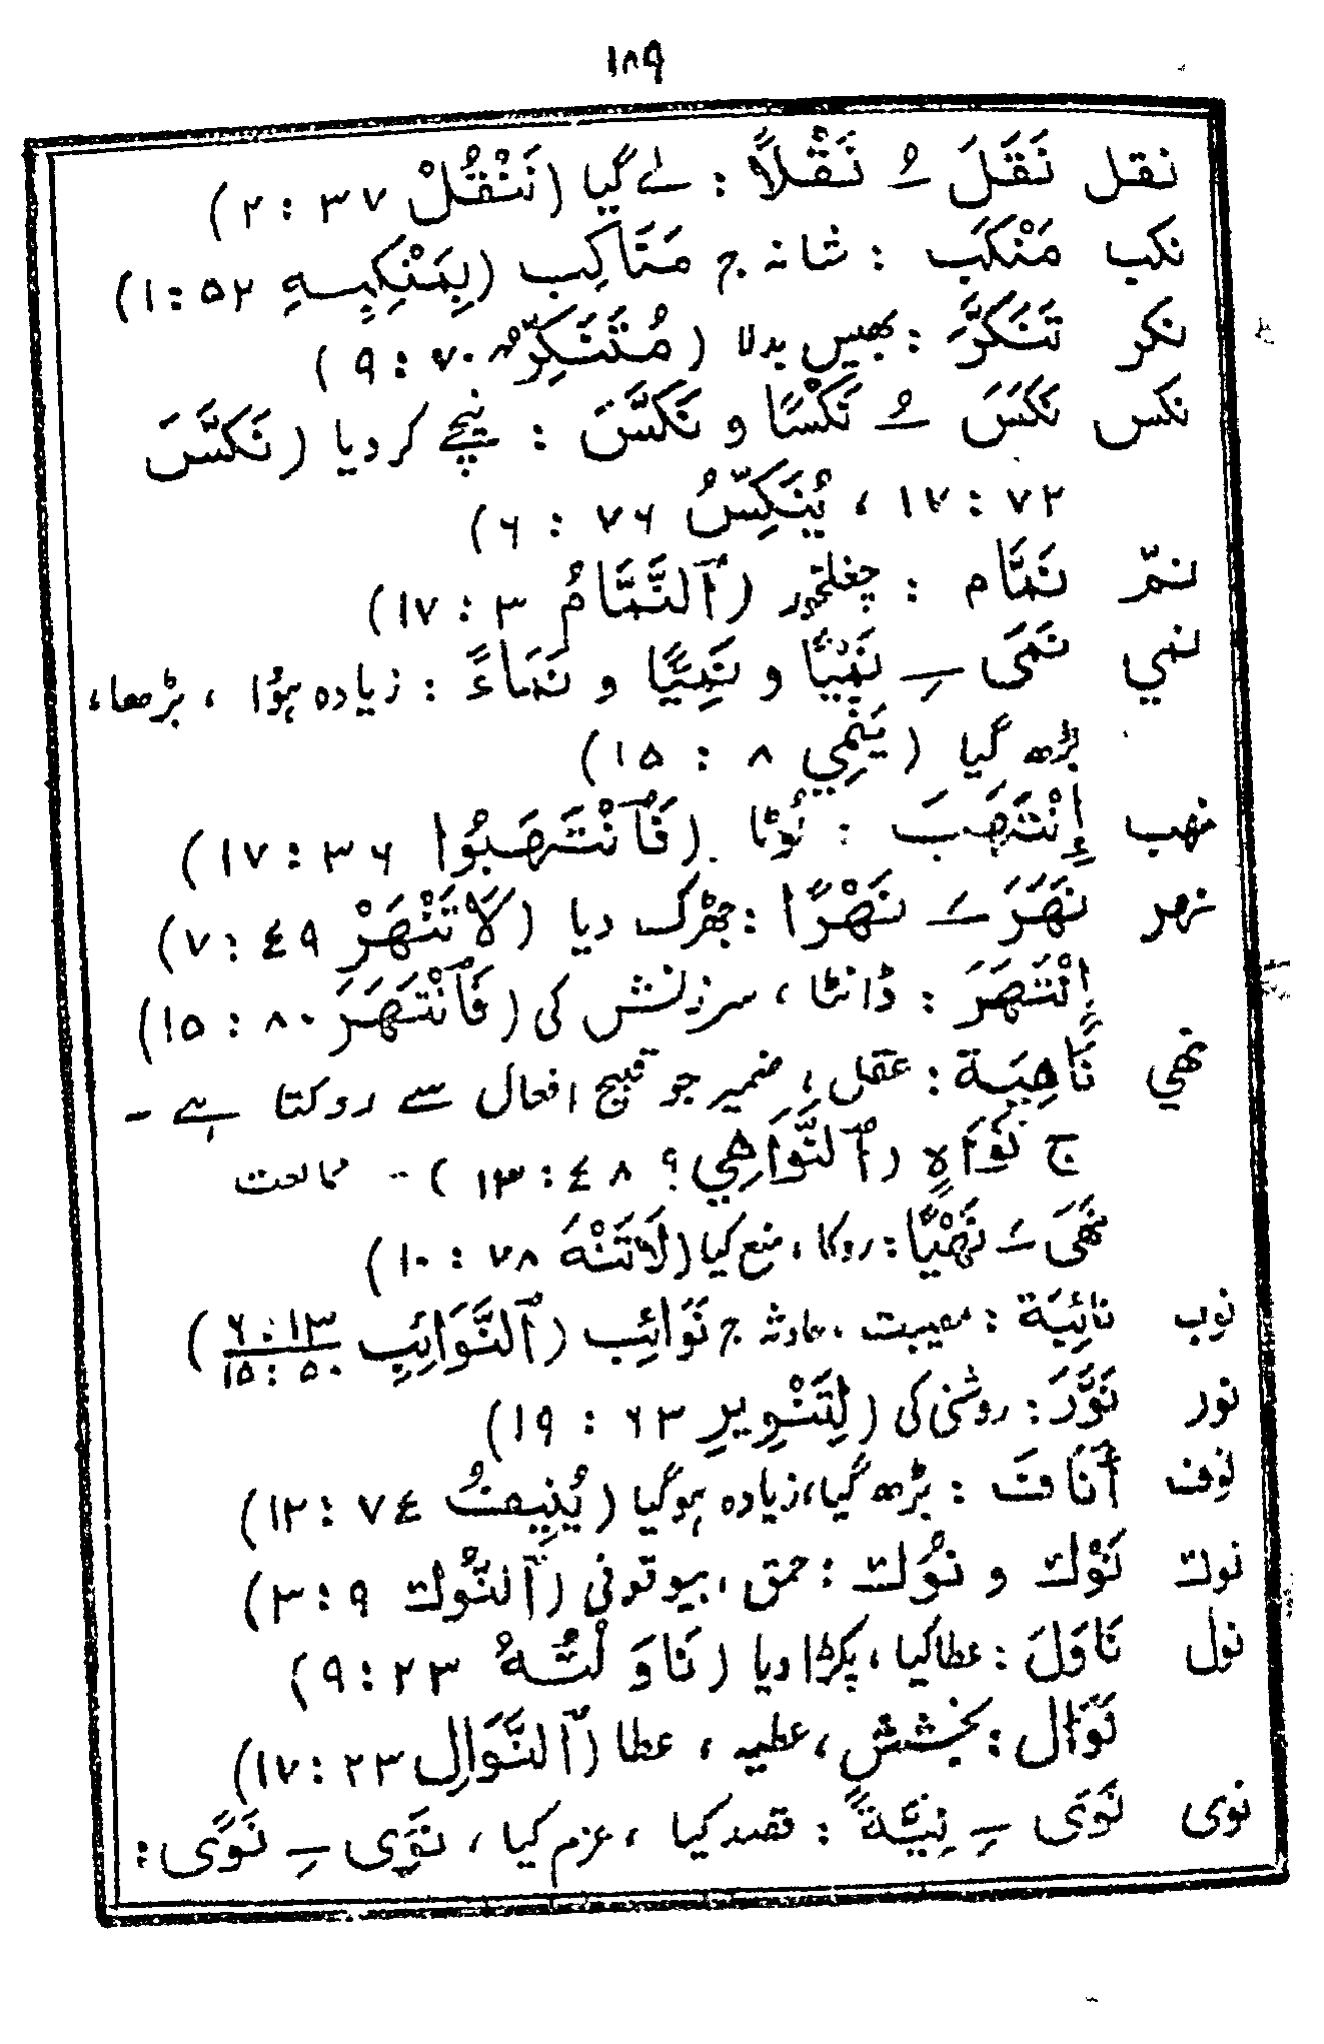 ۱۸۹
نقل نَقَلَ ـُ نَقْلًا : لے گیا (نَنْقُلْ ۳۷ : ۲)
نکب مَنْکَب : شانہ ج مَنَاکِب (بِمَنْکِبِہِ ۵۲ : ۱)
نکر تَنَکَّرَ : بھیس بدلا (مُتَنَکِّرٌ ۷۰ : ۹)
نکس نَکَسَ ـُ نَکْسًا و نَکَّسَ : نیچے کر دیا (نَکَّسَ
۷۲ : ۱۷ ، یُنَکِّسُ ۷۶ : ۶)
نمّ نَمَّام : چغلخور (ٱلنَّمَّامُ ۳ : ۱۷)
نمي نَمَی ـِ نَمْیًا و نَمِیًّا و نَمَاءً : زیادہ ہؤا ، بڑھا،
بڑھ گیا (یَنْمِي ۸ : ۱۵)
نھب إِنْتَھَبَ : لُوٹا (فَٱنْتَھَبُوا ۳۶ : ۱۷)
نھر نَھَرَ ـَ نَھْرًا : جھڑک دیا (لَاتَنْھَرْ ٤۹ : ۷)
إِنْتَھَرَ : ڈانٹا ، سرزنش کی (فَٱنْتَھَرَ ۸۰ : ۱۵)
نھي نَاھِیَة : عقل ، ضمیر جو قبیح افعال سے روکتا ہے ۔
ج نَوَاہٍ (ٱلنَّوَاھِي ؟ ٤۸ : ۱۳) ۔۔ ممانعت
نَھَی ـَ نَھْیًا : روکا ، منع کیا (لَاتَنْہَ ۷۸ : ۱۰)
نوب نائِبَة : مصیبت ، حادثہ ج نَوَائِب (ٱلنَّوَائِبِ ۱۳ : ۶ / ۵۰ : ۱۵)
نور نَوَّرَ : روشنی کی (لِتَنْوِیرِ ۶۳ : ۱۹)
نوف أَنَافَ : بڑھ گیا، زیادہ ہوگیا (یُنِیفُ ۷٤ : ۱۲)
نوك نَوْك و نُوْك : حمق ، بیوقوفی (ٱلنُّوْك ۹ : ۳)
نول نَاوَلَ : عطا کیا ، پکڑا دیا (نَاوَلْتُہُ ۲۳ : ۹)
نَوَال : بخشش ، عطیہ ، عطا (ٱلنَّوَالِ ۲۳ : ۱۷)
نوی نَوَی ـِ نِیَّةً : قصد کیا ، عزم کیا ، نَوَی ـِ نَوًی :